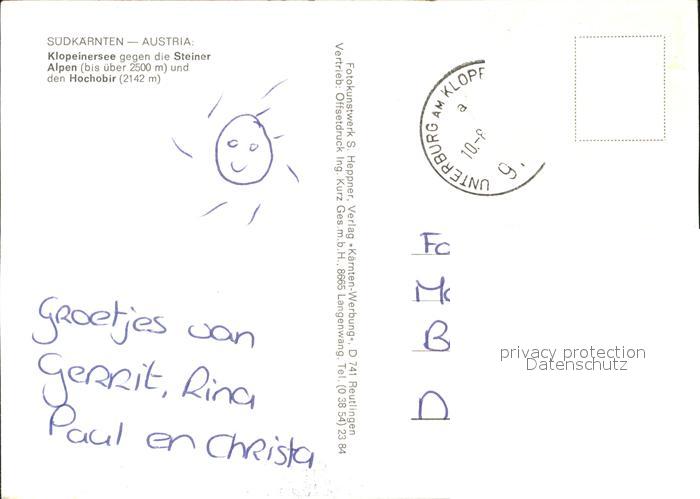 SÜDKÄRNTEN — AUSTRIA:
Klopeinersee gegen die Steiner
Alpen (bis über 2500 m) und
den Hochobir (2142 m)
Groetjes van
Gerrit, Rina
Paul en Christa
Fotokunstwerk S. Heppner, Verlag »Kärnten-Werbung«, D 741 Reutlingen
Vertrieb: Offsetdruck Ing. Kurz Ges.m.b.H., 8665 Langenwang, Tel. (0 38 54) 23 84
UNTERBURG AM KLOPF
a
10.-8
9.
Fa
M
B
D
privacy protection
Datenschutz